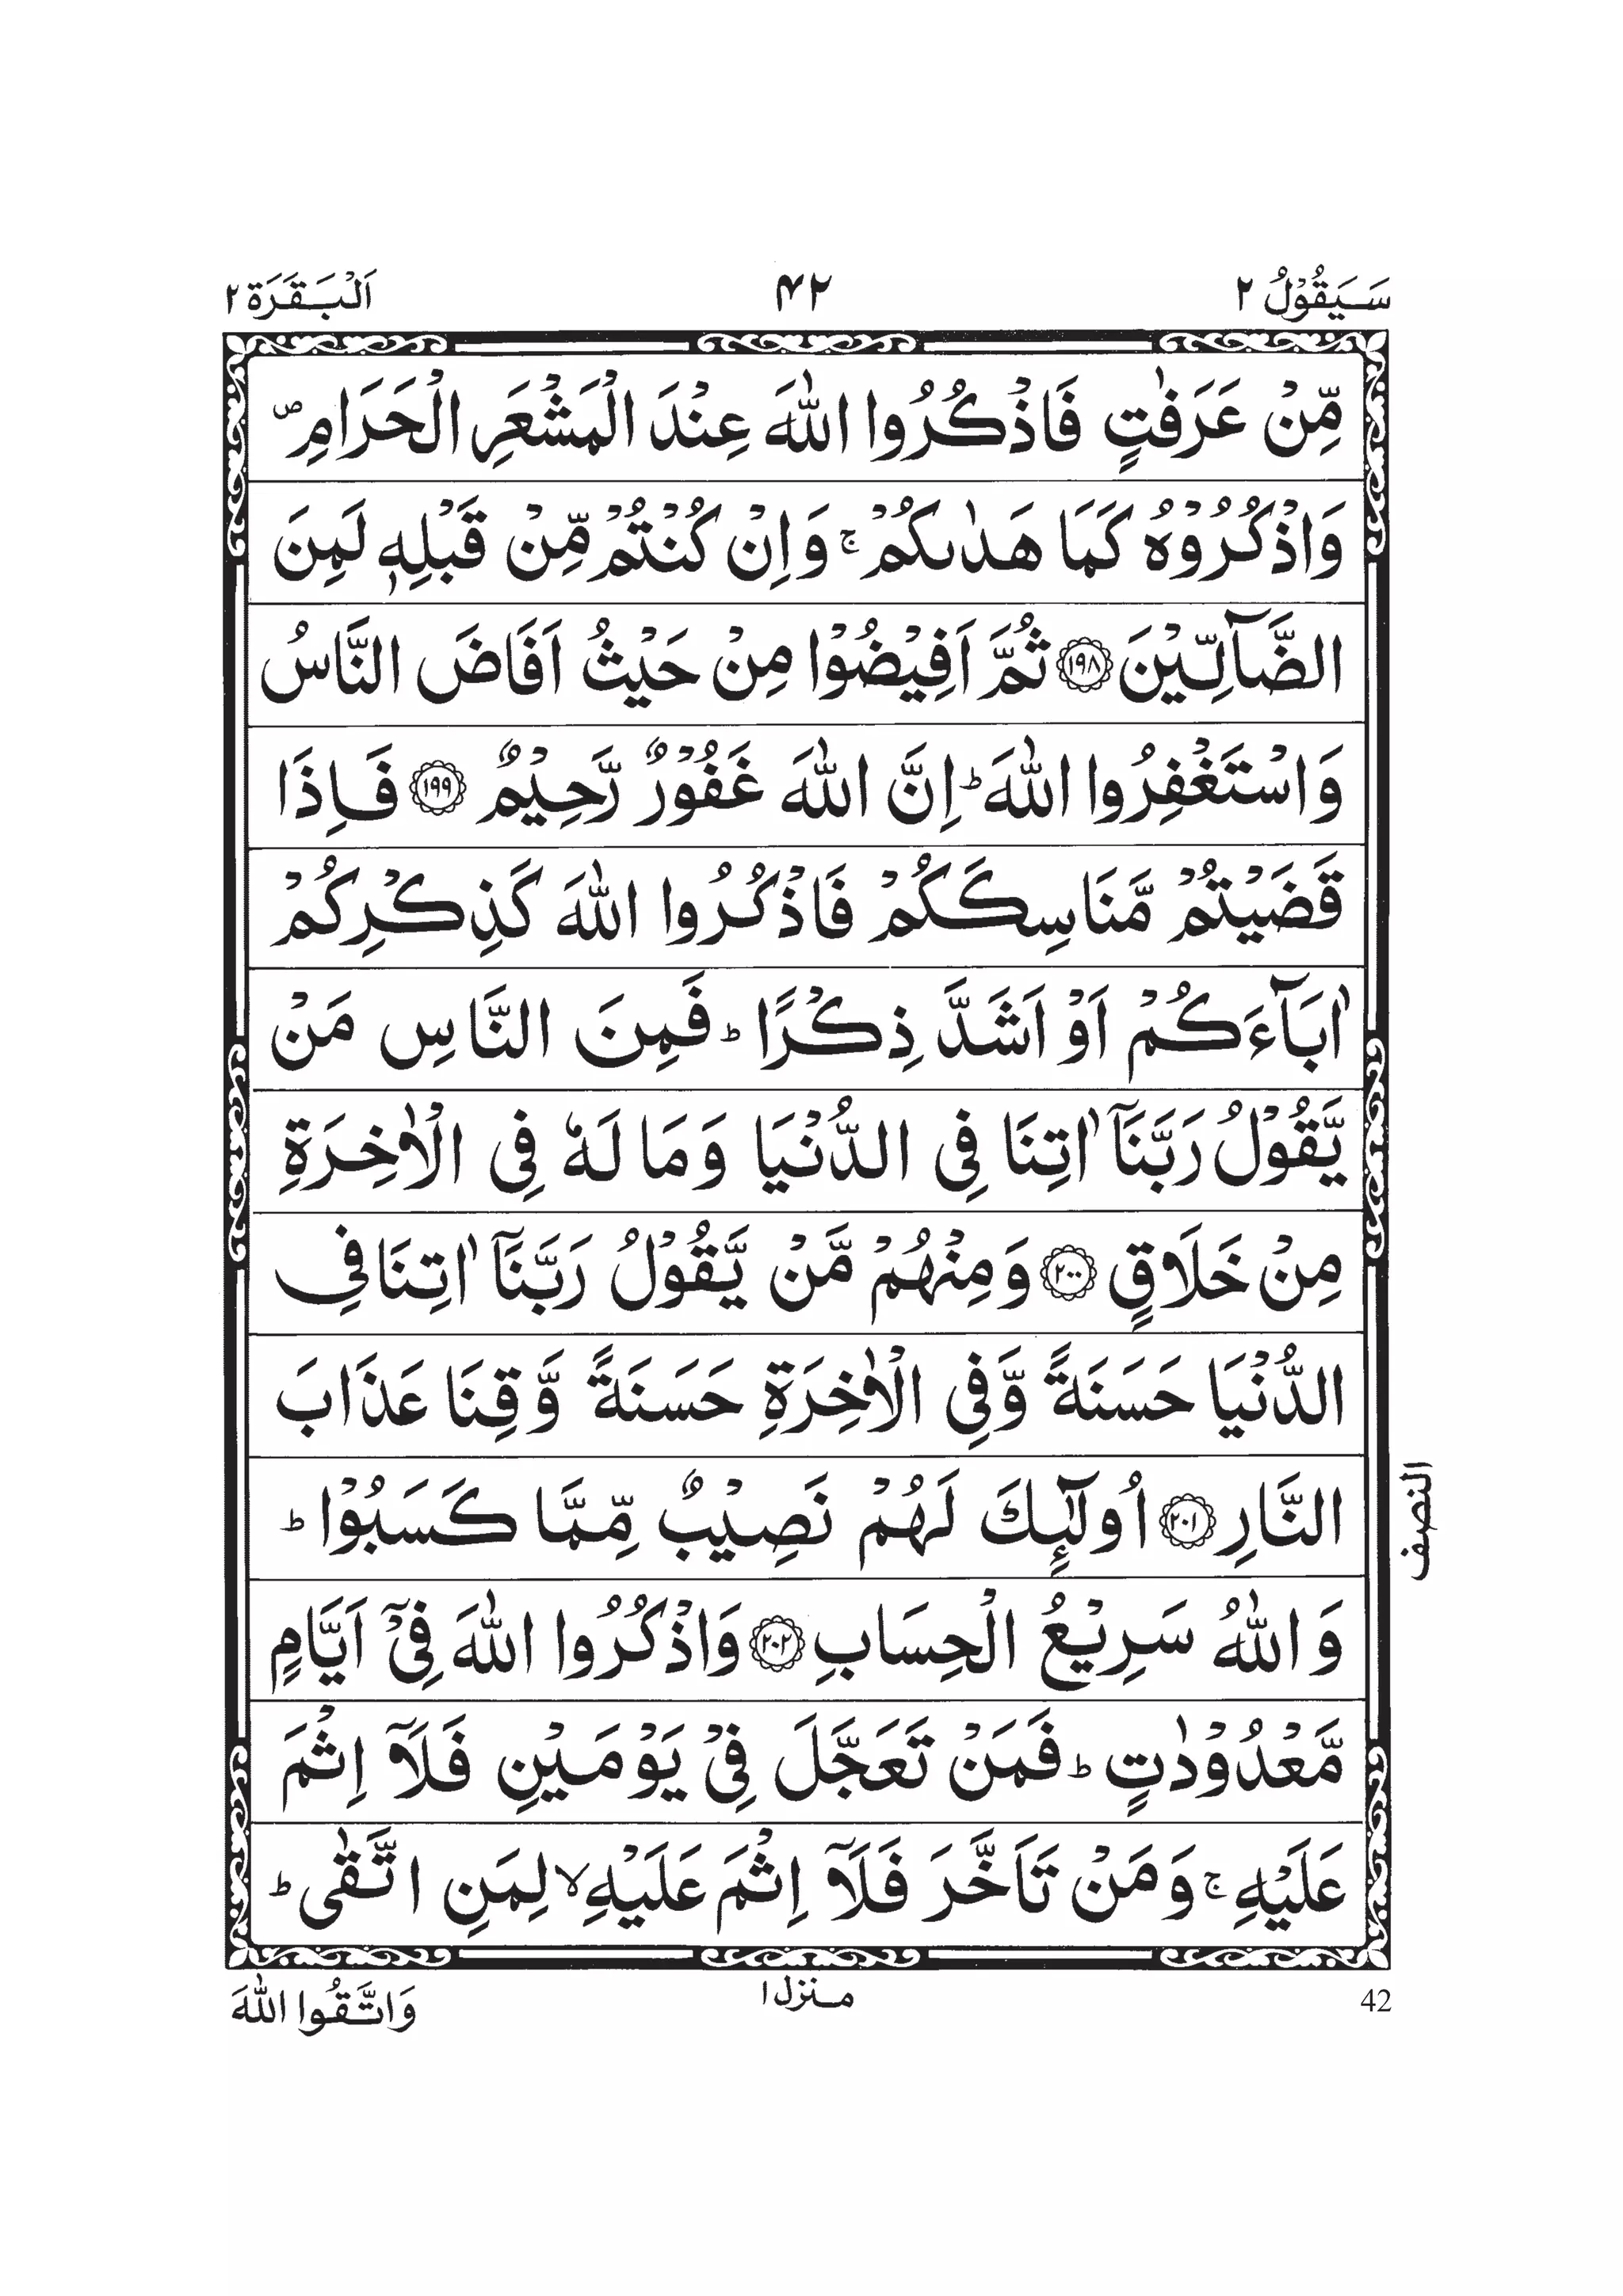 سَيَقُوْلُ ٢
۴٢
اَلْبَقَرَة ٢
مِّنْ عَرَفٰتٍ فَاذْكُرُوا اللّٰهَ عِنْدَ الْمَشْعَرِ الْحَرَامِ ۪
وَاذْكُرُوْهُ كَمَا هَدٰىكُمْ ۚ وَاِنْ كُنْتُمْ مِّنْ قَبْلِهٖ لَمِنَ
الضَّآلِّيْنَ ﴿١٩٨﴾ ثُمَّ اَفِيْضُوْا مِنْ حَيْثُ اَفَاضَ النَّاسُ
وَاسْتَغْفِرُوا اللّٰهَ ؕ اِنَّ اللّٰهَ غَفُوْرٌ رَّحِيْمٌ ﴿١٩٩﴾ فَاِذَا
قَضَيْتُمْ مَّنَاسِكَكُمْ فَاذْكُرُوا اللّٰهَ كَذِكْرِكُمْ
اٰبَآءَكُمْ اَوْ اَشَدَّ ذِكْرًا ؕ فَمِنَ النَّاسِ مَنْ
يَّقُوْلُ رَبَّنَآ اٰتِنَا فِى الدُّنْيَا وَمَا لَهٗ فِى الْاٰخِرَةِ
مِنْ خَلَاقٍ ﴿٢٠٠﴾ وَمِنْهُمْ مَّنْ يَّقُوْلُ رَبَّنَآ اٰتِنَا فِى
الدُّنْيَا حَسَنَةً وَّفِى الْاٰخِرَةِ حَسَنَةً وَّقِنَا عَذَابَ
النَّارِ ﴿٢٠١﴾ اُولٰٓئِكَ لَهُمْ نَصِيْبٌ مِّمَّا كَسَبُوْا ؕ
وَاللّٰهُ سَرِيْعُ الْحِسَابِ ﴿٢٠٢﴾ وَاذْكُرُوا اللّٰهَ فِىْٓ اَيَّامٍ
مَّعْدُوْدٰتٍ ؕ فَمَنْ تَعَجَّلَ فِىْ يَوْمَيْنِ فَلَآ اِثْمَ
عَلَيْهِ ۚ وَمَنْ تَاَخَّرَ فَلَآ اِثْمَ عَلَيْهِ ۙ لِمَنِ اتَّقٰى ؕ
النصف
42
منزل ١
وَاتَّقُوا اللّٰهَ